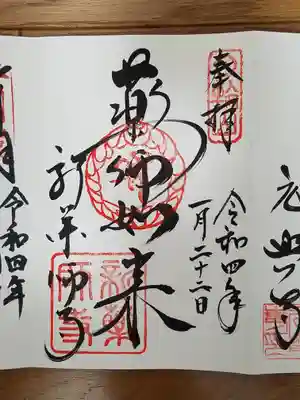 元興寺
奉拝
令和四年
一月二十二日
薬師如来
新薬師寺
令和四年